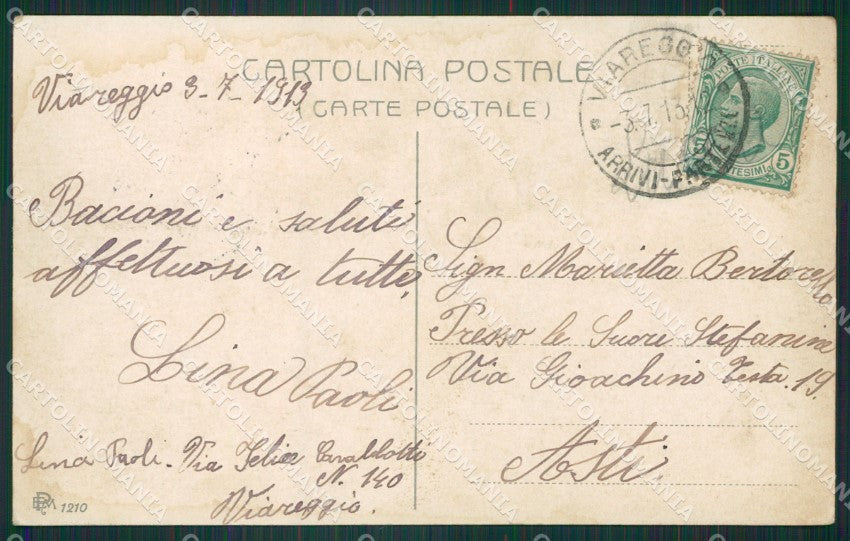 CARTOLINA POSTALE
(CARTE POSTALE)
Viareggio 3-7-1913
VIAREGGIO
-3.7.13
ARRIVI-PARTENZE
POSTE ITALIANE
5
CENTESIMI
Bacioni e saluti
affettuosi a tutte.
Lina Paoli
Lina Paoli - Via Felice Cavallotti
N. 140
Viareggio.
Sign Marietta Bertorello
Presso le Suore Stefanine
Via Gioachino Testa. 19.
Asti.
1210
CARTOLINOMANIA